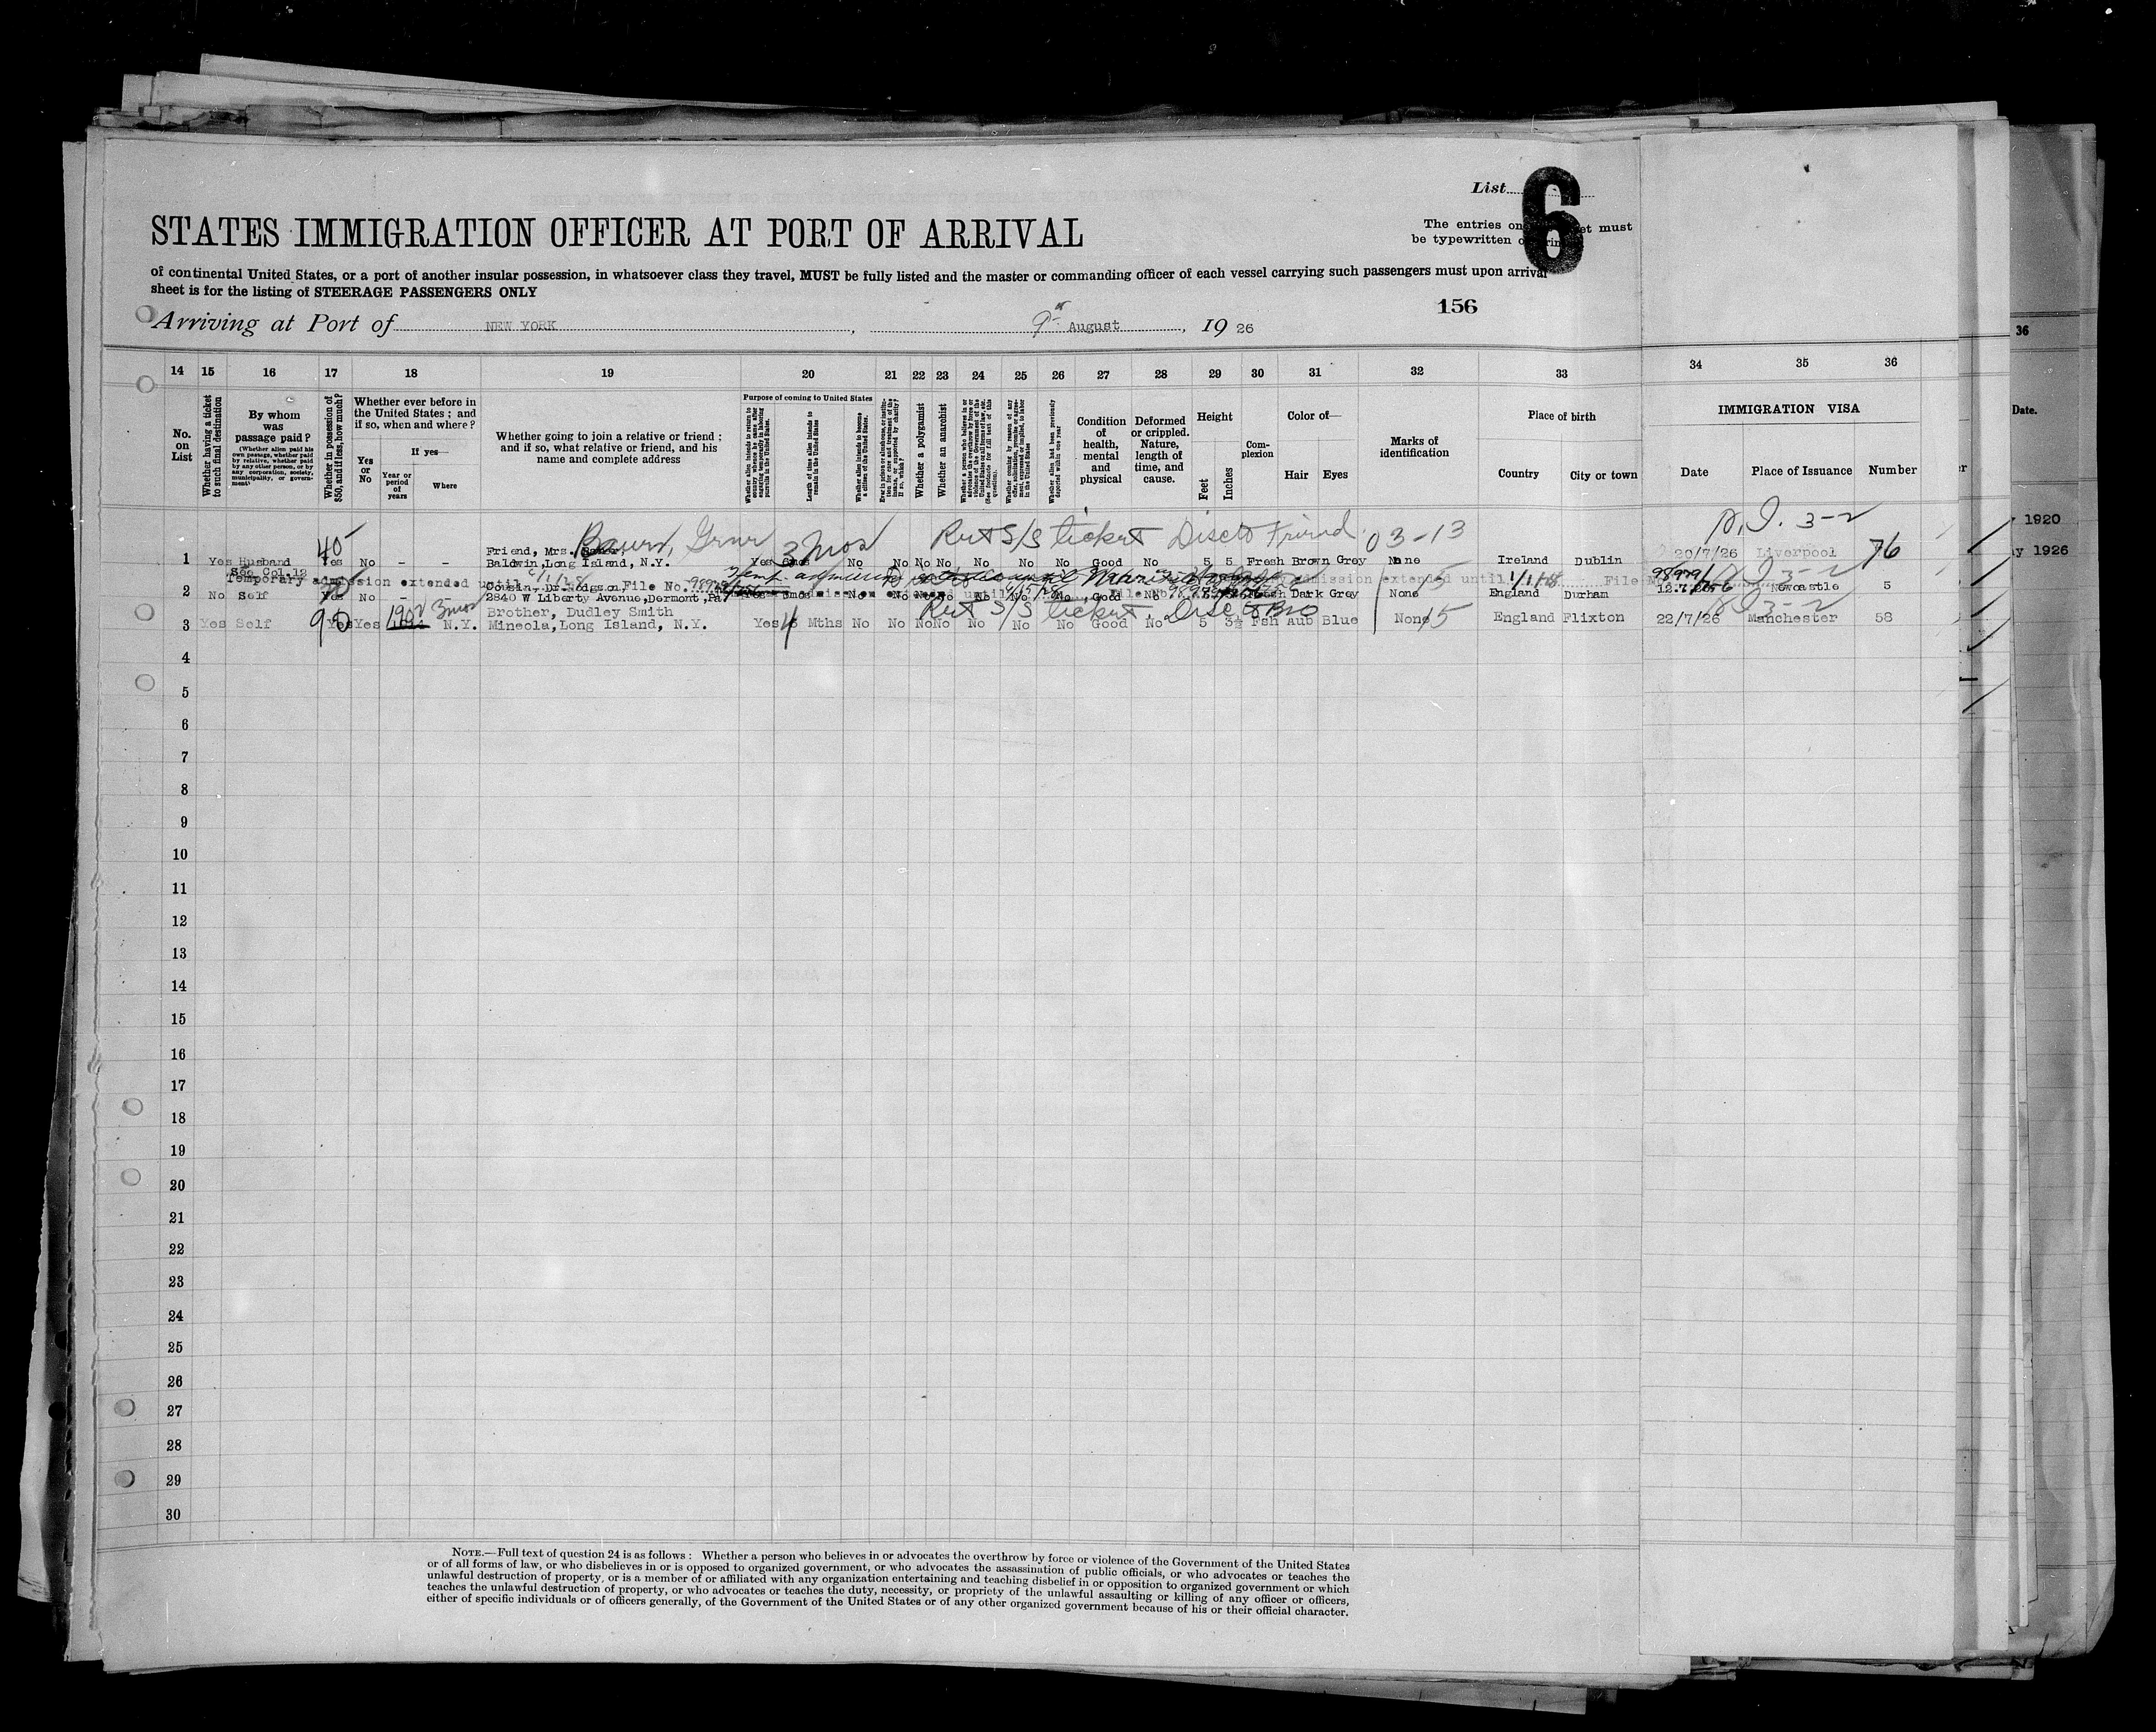 List 6
The entries on must
be typewritten
STATES IMMIGRATION OFFICER AT PORT OF ARRIVAL
of continental United States, or a port of another insular possession, in whatsoever class they travel, MUST be fully listed and the master or commanding officer of each vessel carrying such passengers must upon arrival
sheet is for the listing of STEERAGE PASSENGERS ONLY
156
Arriving at Port of NEW YORK, 9th August, 19 26
36
14 15 16 17 18 19 20 21 22 23 24 25 26 27 28 29 30 31 32 33 34 35 36
No. on List
Whether having a ticket to such final destination
By whom was passage paid?
(Whether alien paid his own passage, whether paid by relative, whether paid by any other person, or by any corporation, society, municipality, or government)
Whether in possession of $50, and if less, how much?
Whether ever before in the United States; and if so, when and where?
Yes or No
If yes—
Year or period of years
Where
Whether going to join a relative or friend; and if so, what relative or friend, and his name and complete address
Purpose of coming to United States
Length of time alien intends to remain in the United States
Whether alien intends to become a citizen of the United States
Whether a polygamist
Whether an anarchist
Condition of health, mental and physical
Deformed or crippled. Nature, length of time, and cause.
Height
Feet Inches
Complexion
Color of—
Hair Eyes
Marks of identification
Place of birth
Country City or town
IMMIGRATION VISA
Date Place of Issuance Number
Date.
1920
y 1926
40 Bauer, 3 mos Ret S/S ticket Disc to Friend 03-13 3-2
Friend, Mrs.
1 Yes Husband Yes No - - Baldwin, Long Island, N.Y. Yes 6mos No No No No No No No Good No 5 5 Fresh Brown Grey None Ireland Dublin 20/7/26 Liverpool 76
See Col.12
Temporary admission extended until File No. admission extended until File
Cousin, Dr. Hodgson,
2 No Self Yes No - - 2840 W Liberty Avenue, Dormont, Pa Good No Dark Grey None England Durham Newcastle 5
Brother, Dudley Smith Ret S/S ticket. Disc to Bro 3-2
3 Yes Self 90 Yes Yes 1902 3 mos N.Y. Mineola, Long Island, N.Y. Yes 4 Mths No No No No No No No Good No 5 3½ Fsh Aub Blue None 15 England Flixton 22/7/26 Manchester 58
4
5
6
7
8
9
10
11
12
13
14
15
16
17
18
19
20
21
22
23
24
25
26
27
28
29
30
NOTE.—Full text of question 24 is as follows: Whether a person who believes in or advocates the overthrow by force or violence of the Government of the United States
or of all forms of law, or who disbelieves in or is opposed to organized government, or who advocates the assassination of public officials, or who advocates or teaches the
unlawful destruction of property, or is a member of or affiliated with any organization entertaining and teaching disbelief in or opposition to organized government or which
teaches the unlawful destruction of property, or who advocates or teaches the duty, necessity, or propriety of the unlawful assaulting or killing of any officer or officers,
either of specific individuals or of officers generally, of the Government of the United States or of any other organized government because of his or their official character.